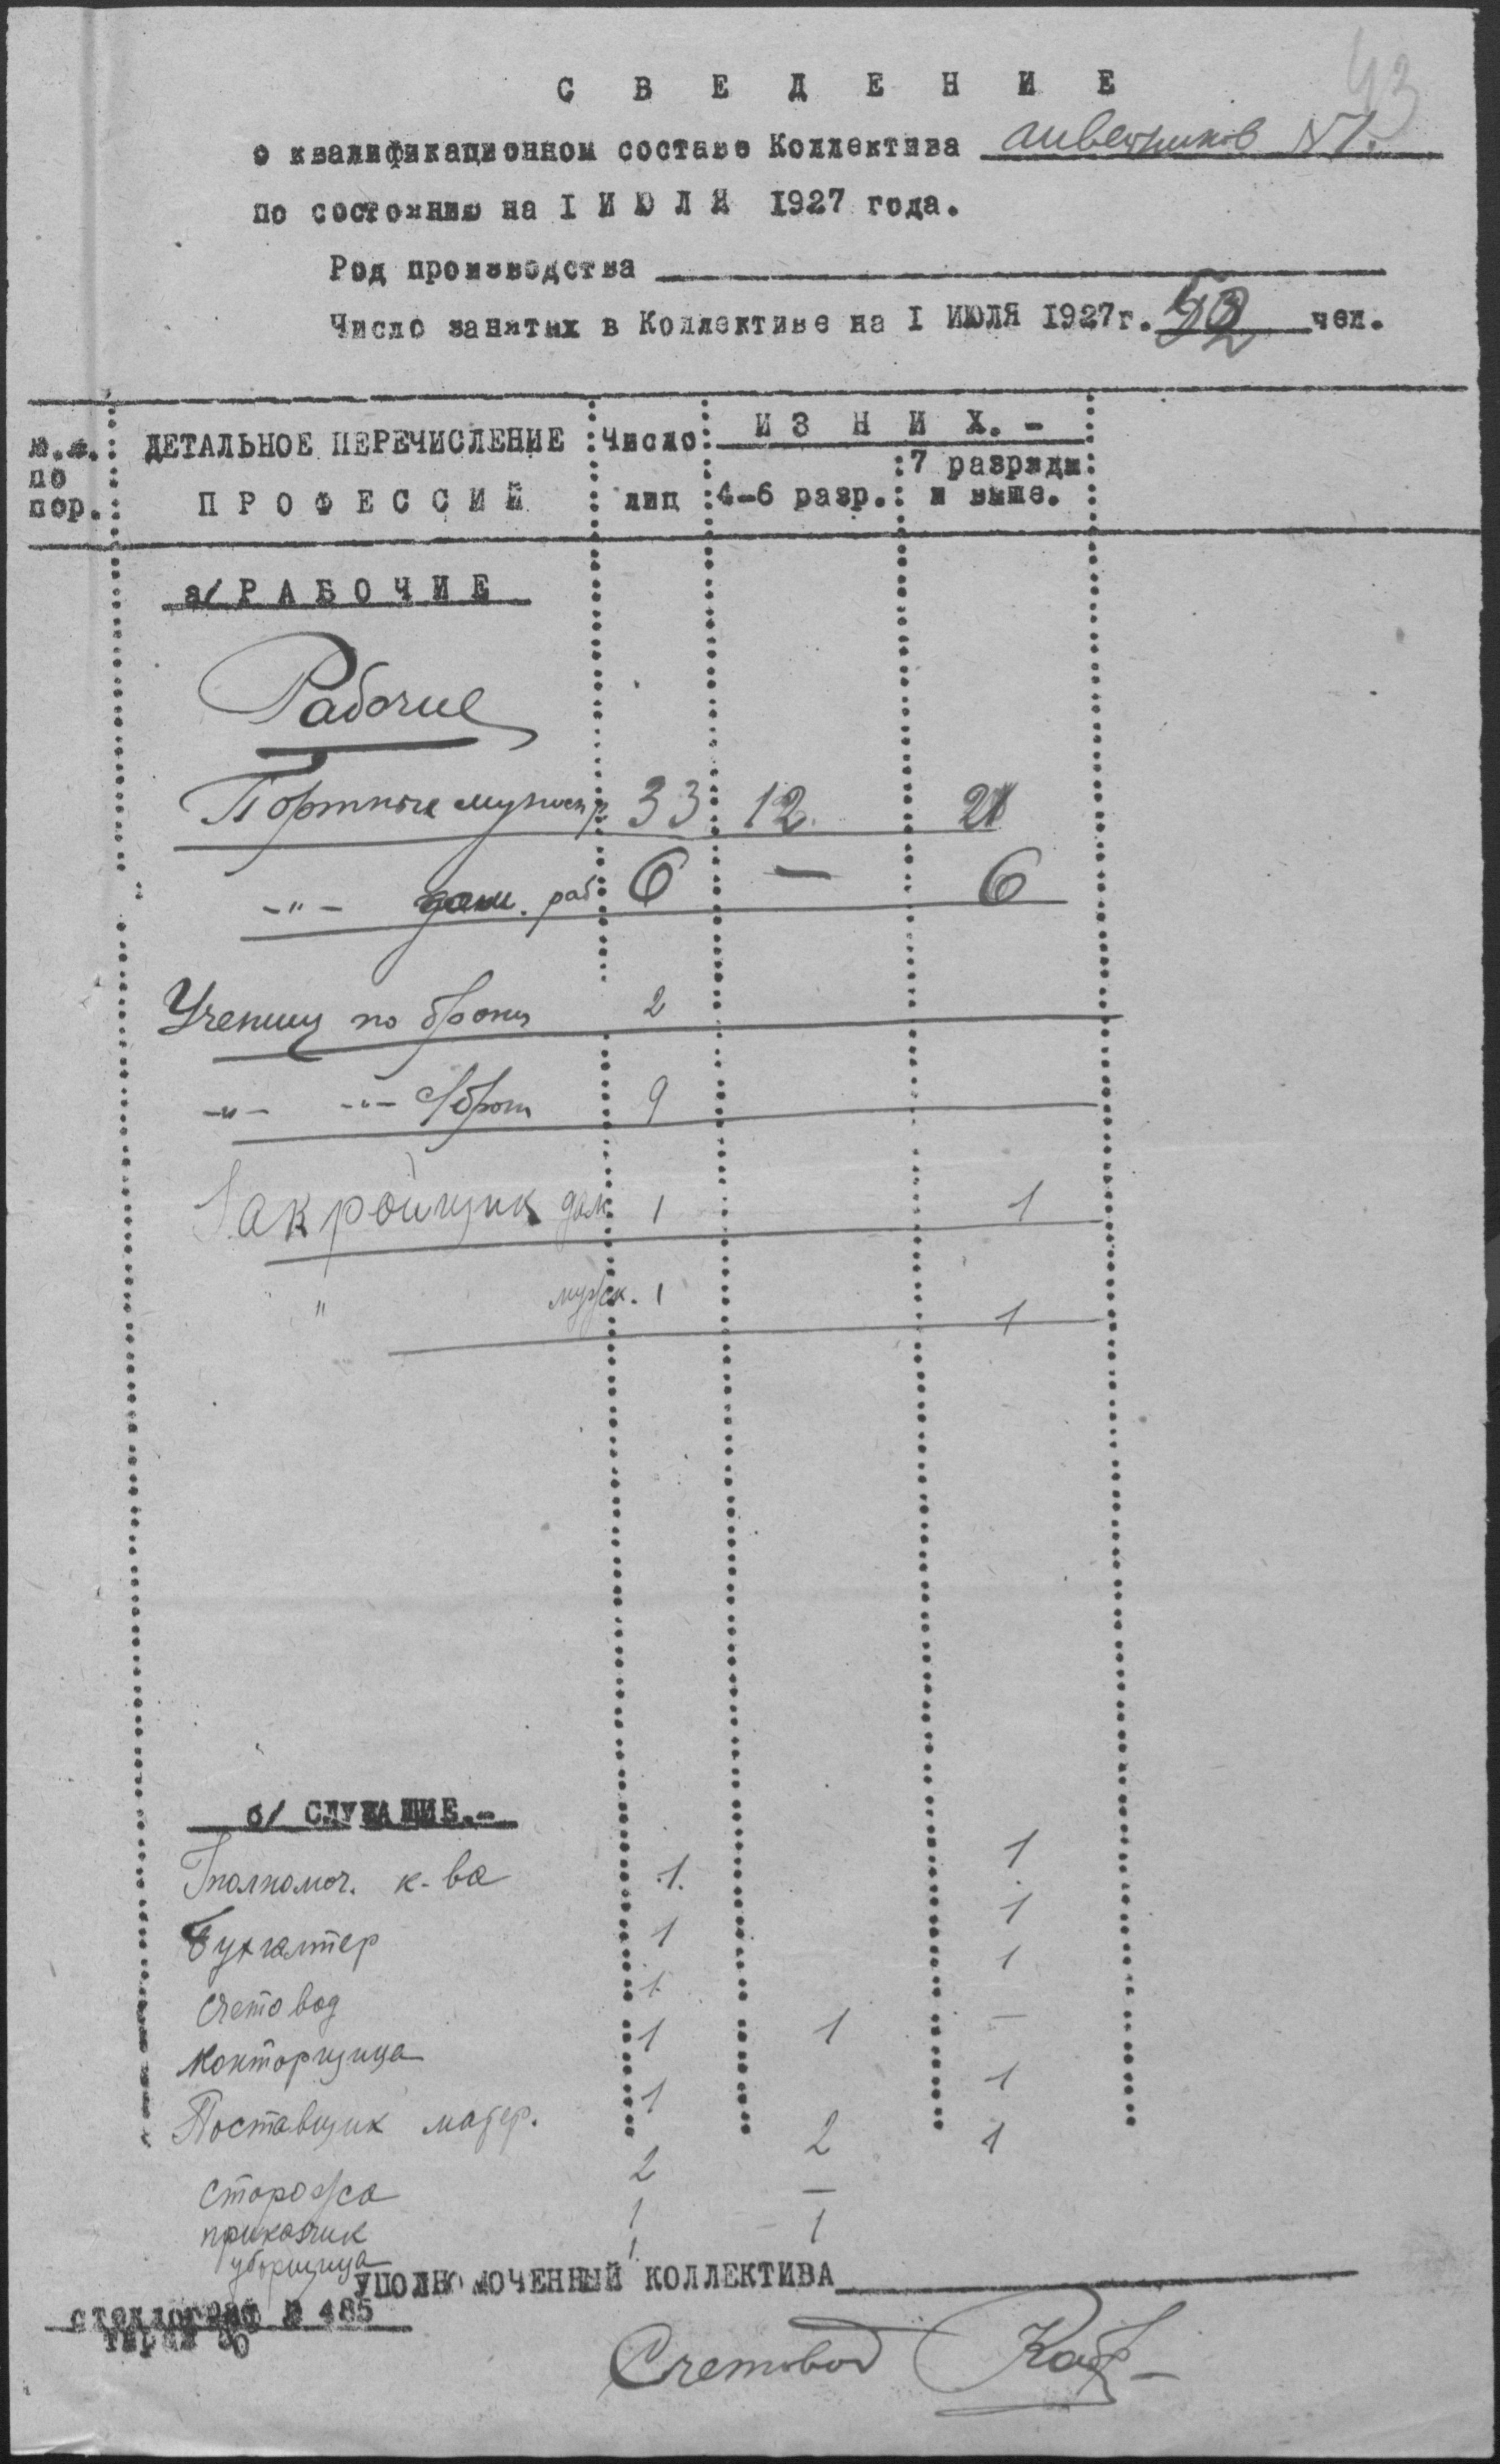 43
С В Е Д Е Н И Е
о квалификационном составе Коллектива швейников №1.
по состоянию на I И Ю Л Я 1927 года.
Род производства
Число занятых в Коллективе на I ИЮЛЯ 1927г. 52 чел.
№.№. по пор. ДЕТАЛЬНОЕ ПЕРЕЧИСЛЕНИЕ ПРОФЕССИЙ Число лиц И З Н И Х. -
4-6 разр. 7 разряда и выше.
а/ Р А Б О Ч И Е
Рабочие
Портные мужск р 33 12. 21
-"- дам. раб 6 — 6
Ученики по брони 2
-"- -"- с/брони 9
Закройщик дам. 1 1
" мужск. 1 1
б/ СЛУЖАЩИЕ.-
Уполномоч. к-ва 1. 1
Бухгалтер 1 1
Счетовод 1 1
Конторщица 1 1 —
Поставщик матер. 1 1
Сторожа 2 2
приказчик 1 — 1
уборщица 1. 1
УПОЛНОМОЧЕННЫЙ КОЛЛЕКТИВА
стеклограф № 485
тираж 30
Счетовод